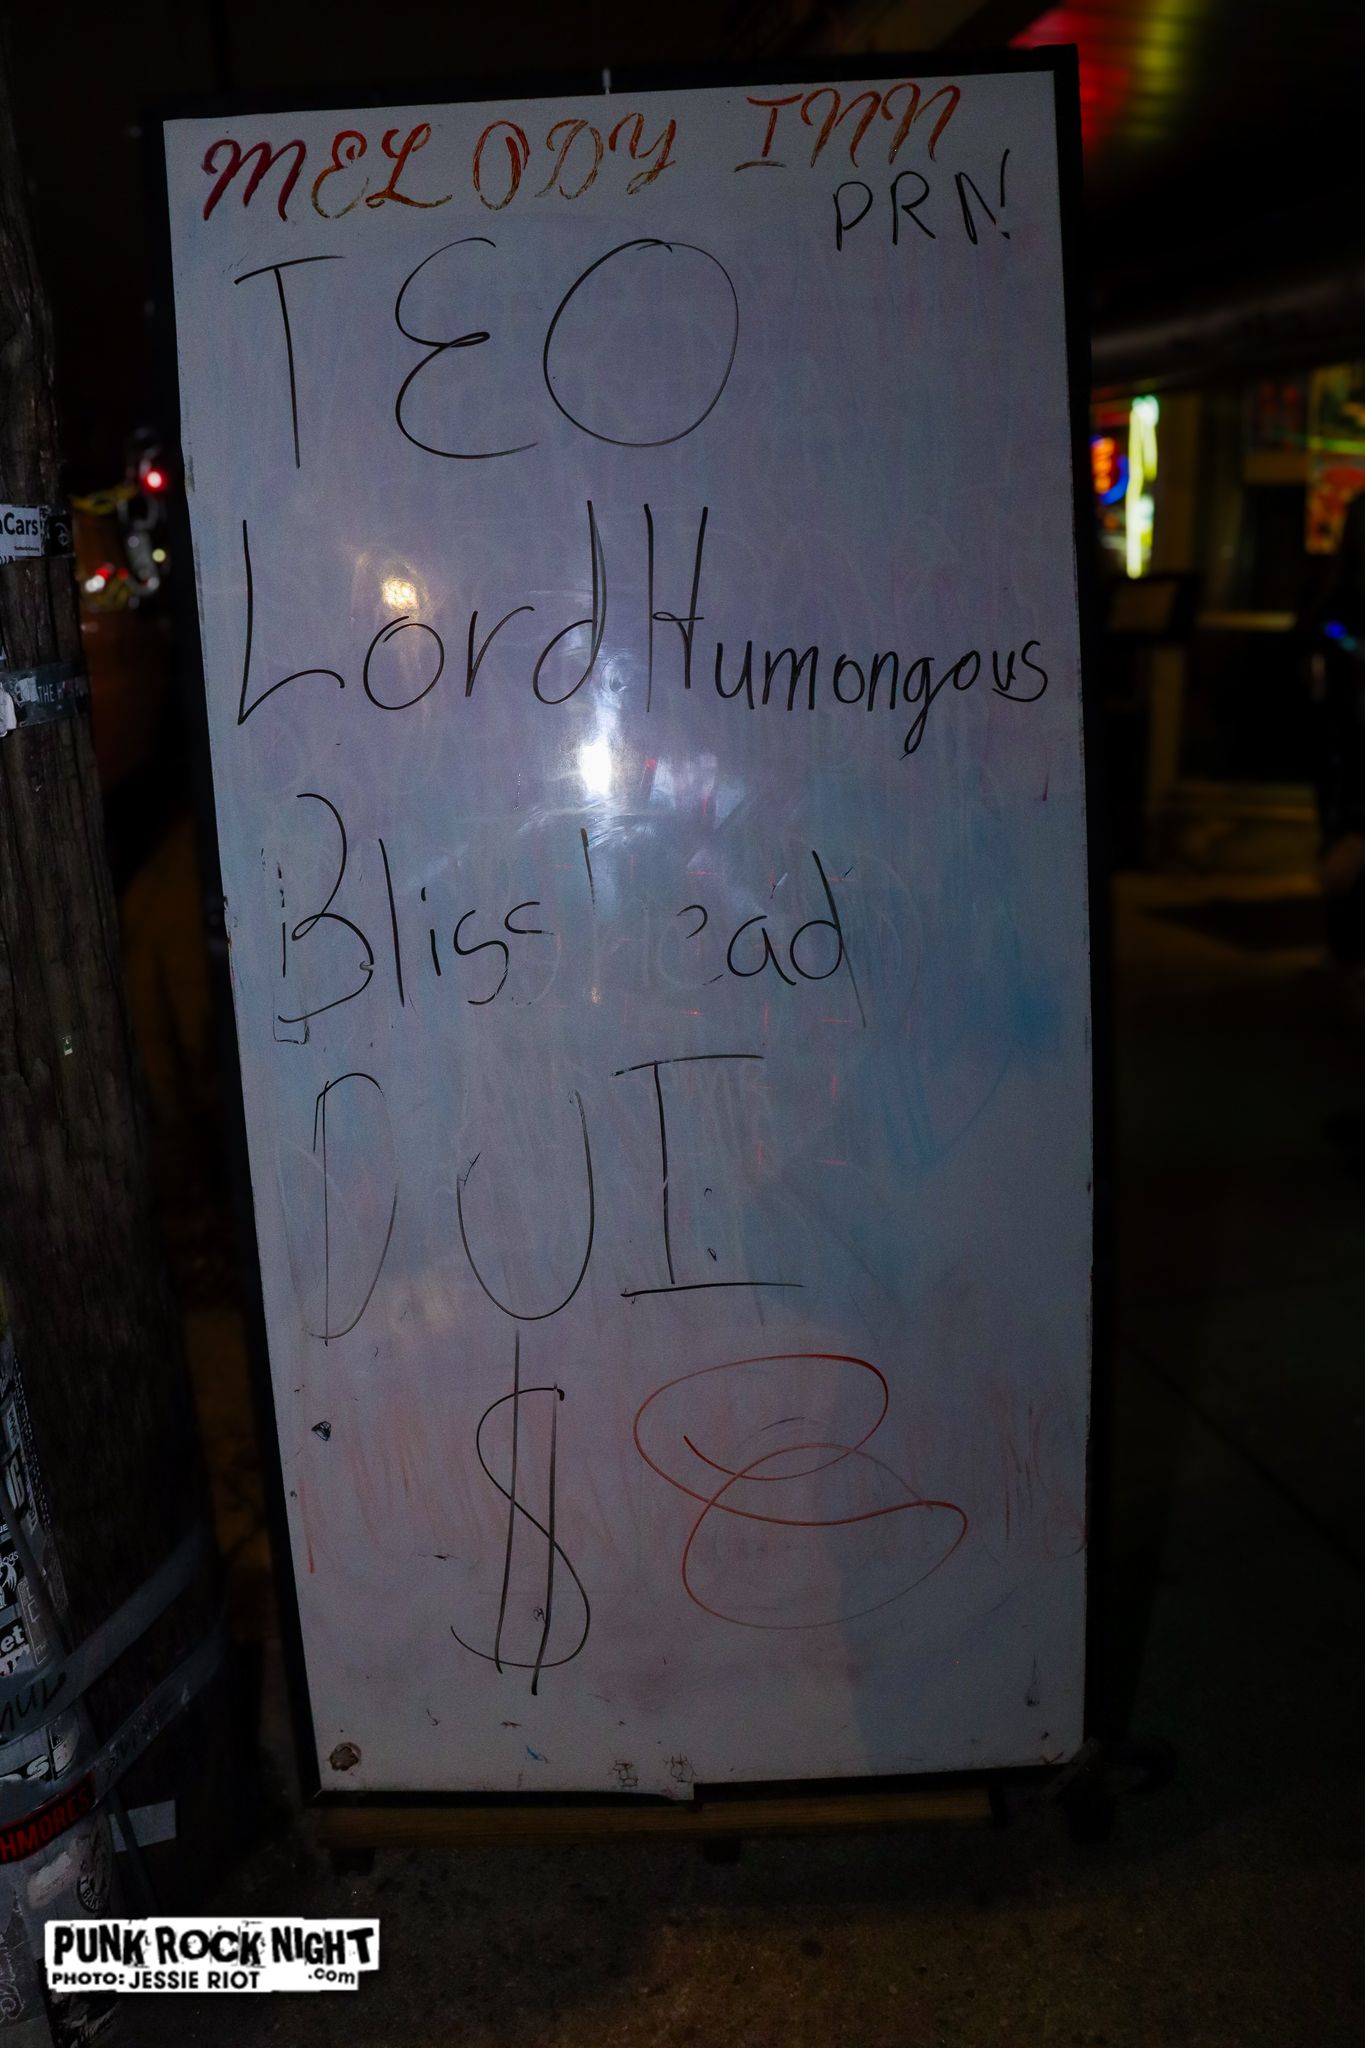 MELODY INN
PRN!
TEO
Lord Humongous
Blisshead
DUI
$8
aCars
THE H
HMORES
PUNK ROCK NIGHT
.com
PHOTO: JESSIE RIOT